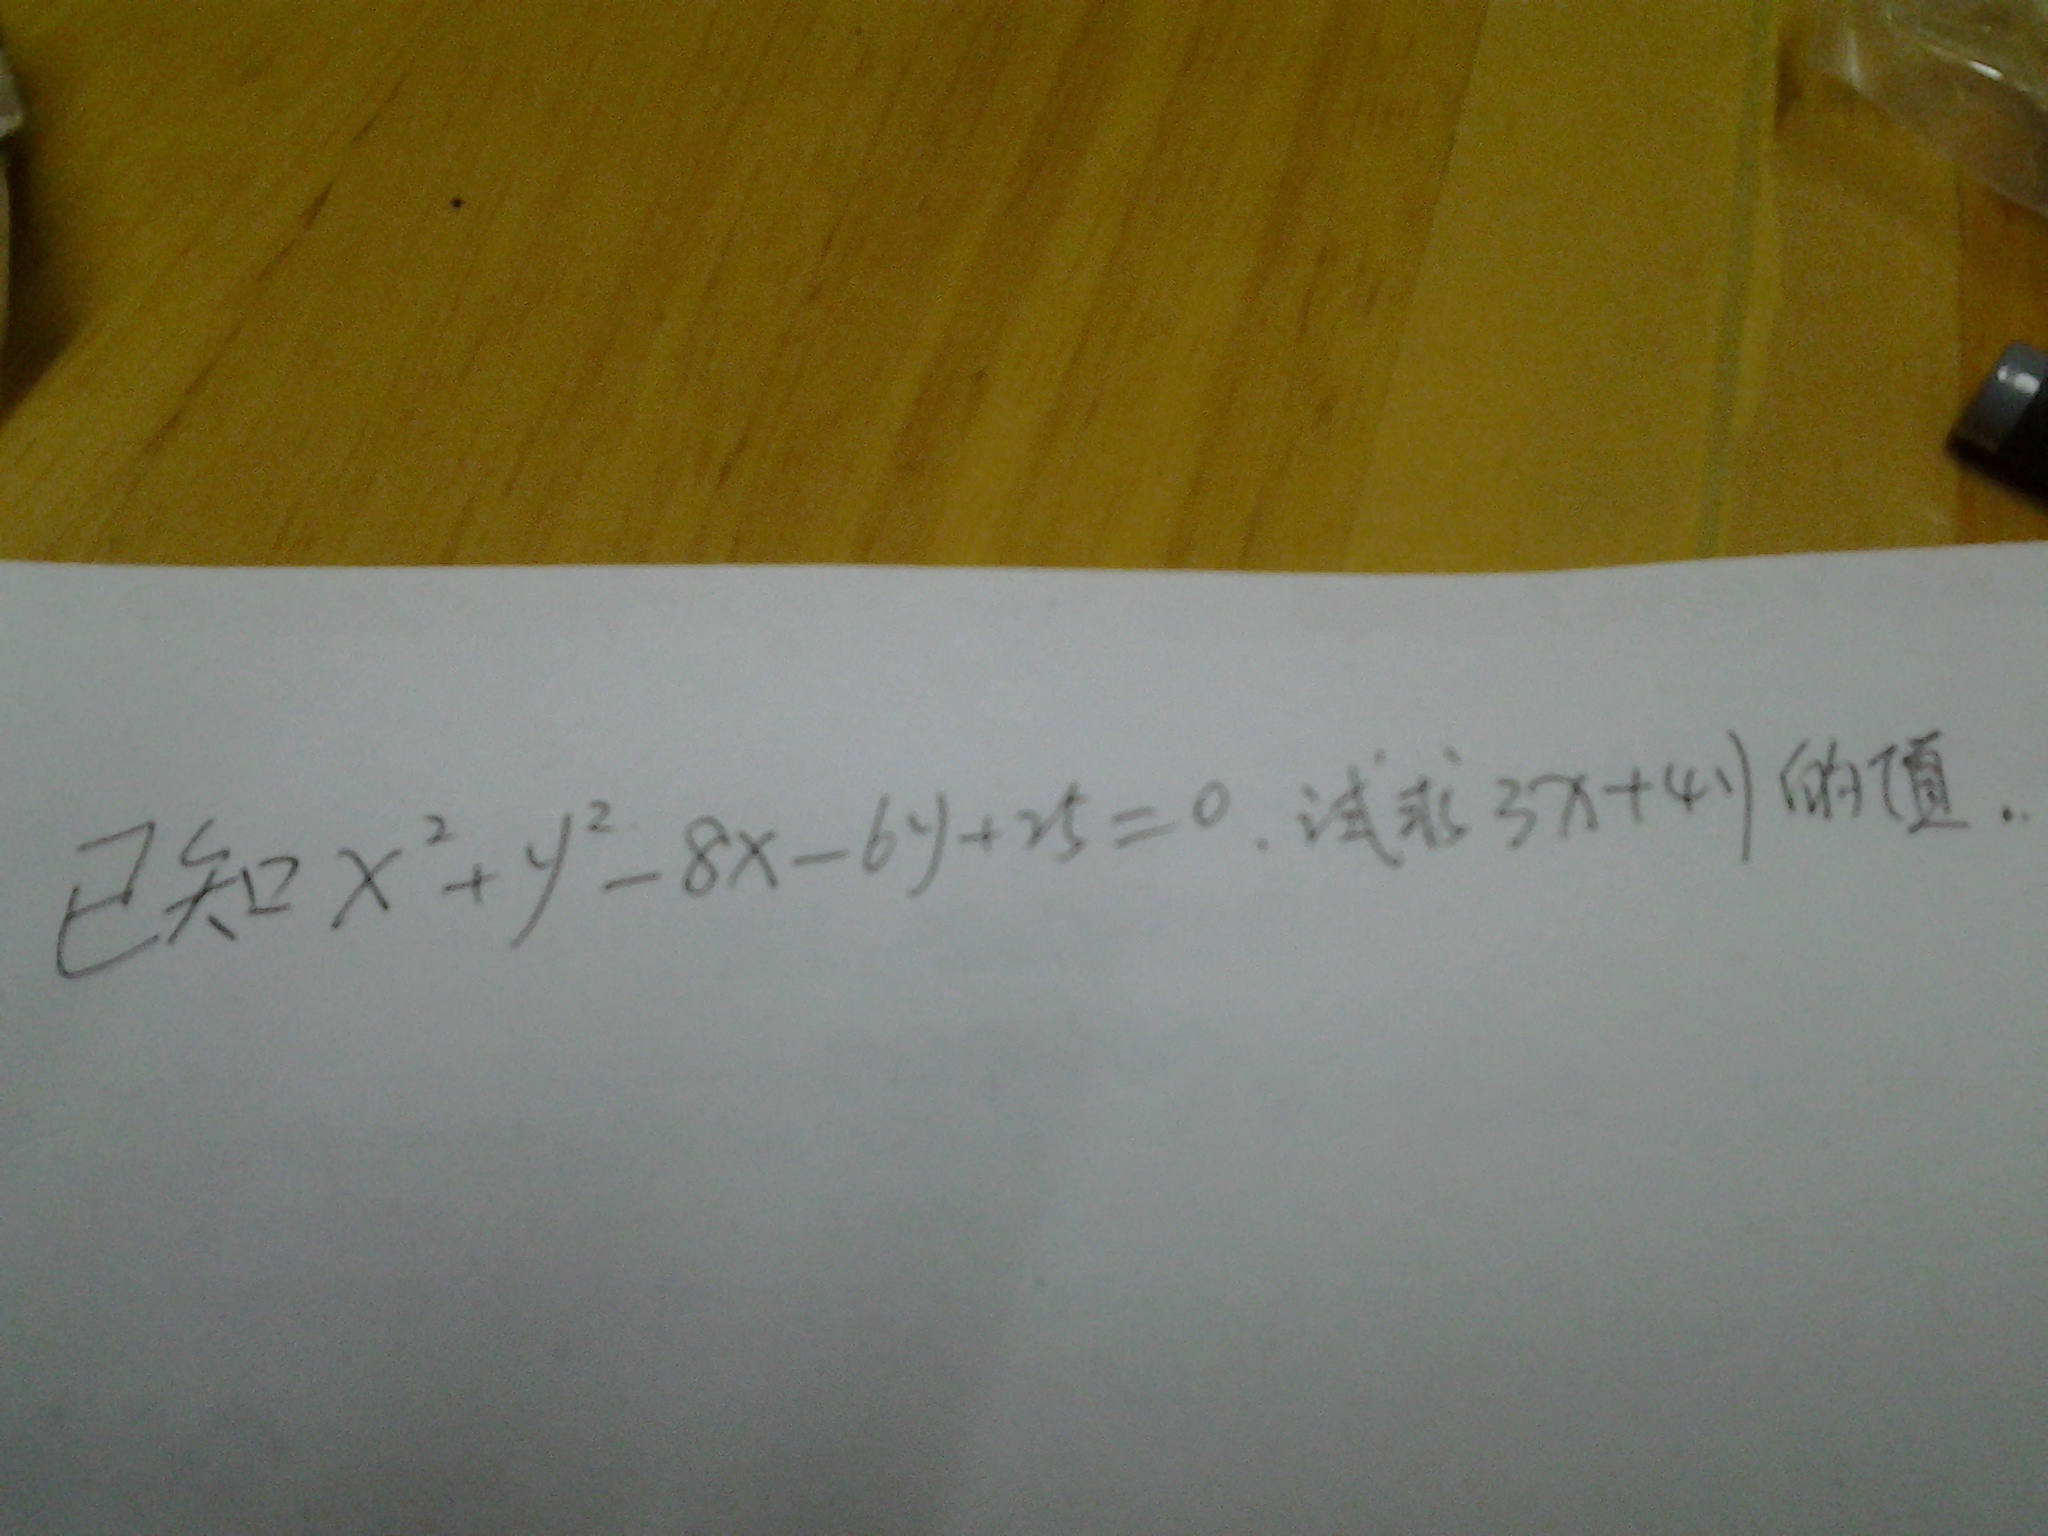 已知x²+y²-8x-6y+25=0.试求3x+4y的值..